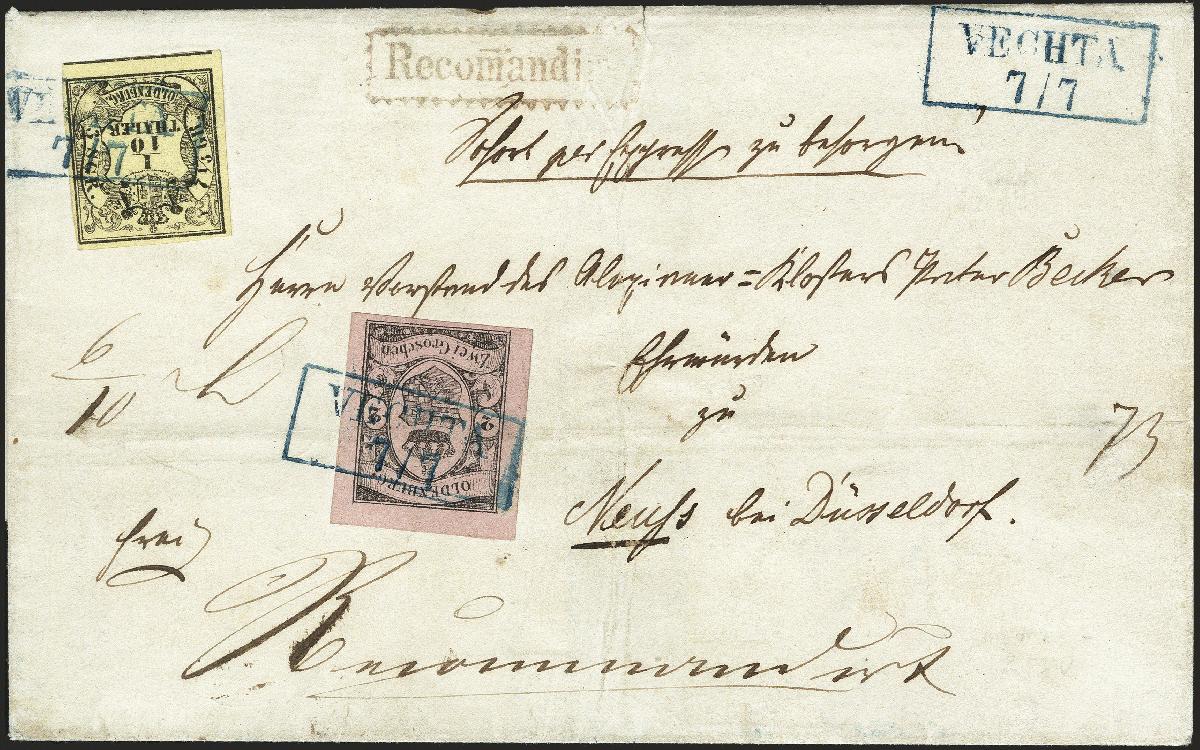 Recomandi
VECHTA
7/7
OLDENBURG.
1
10
THALER
7/7
Sofort per Expressen zu besorgen
Herrn Vorstand des Alexianer=Klosters Pater Becker
Ehrwürden
zu
Neuss bei Düsseldorf.
6
10
73
Zwei Groschen
2
2
OLDENBURG
VECHTA
7/7
frei
Recommandirt